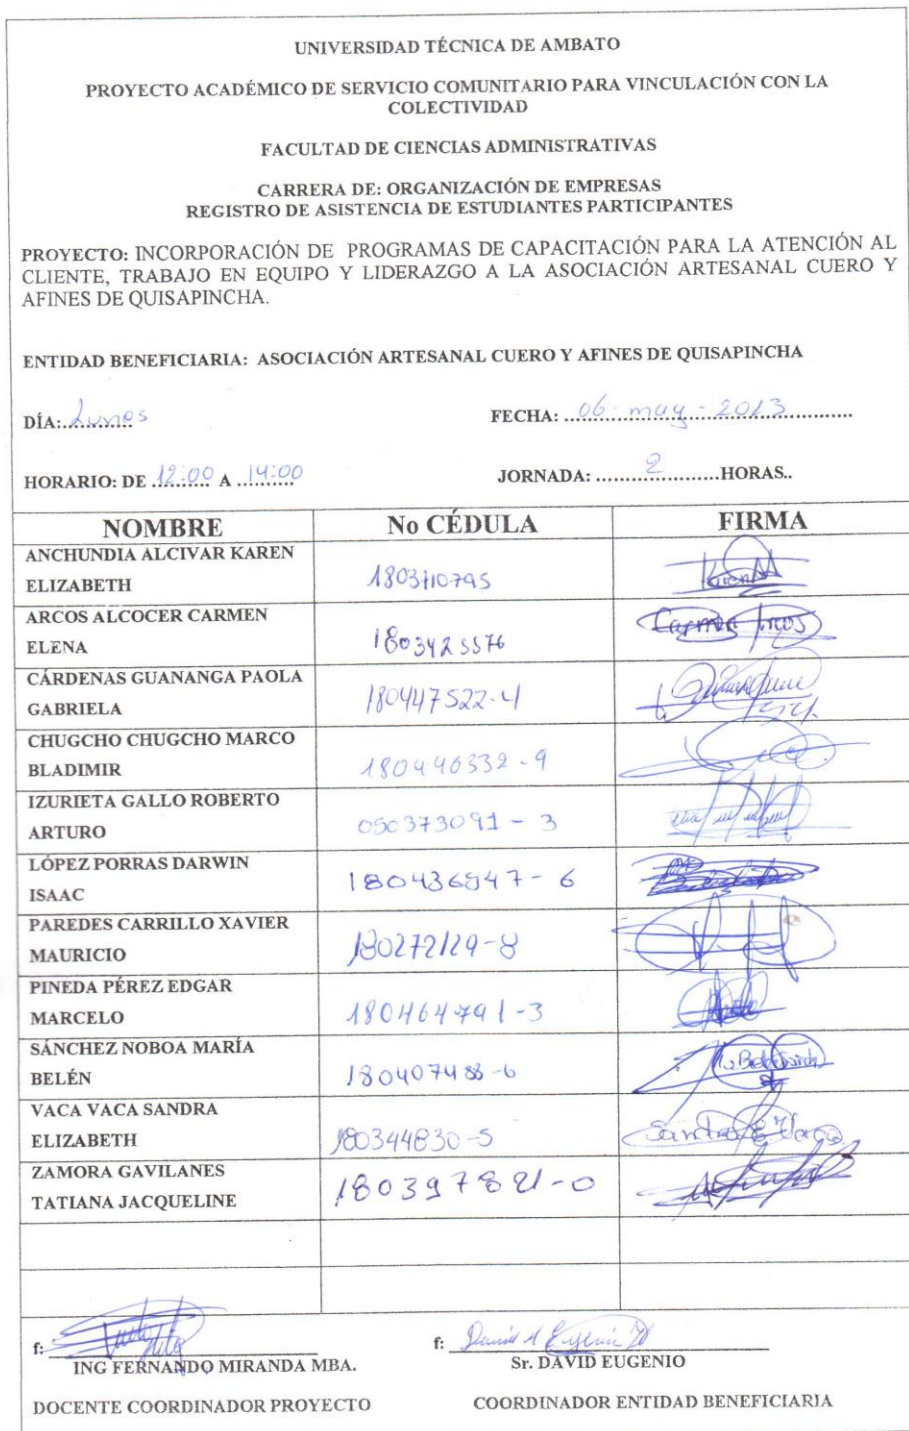 UNIVERSIDAD TÉCNICA DE AMBATO
PROYECTO ACADÉMICO DE SERVICIO COMUNITARIO PARA VINCULACIÓN CON LA
COLECTIVIDAD
FACULTAD DE CIENCIAS ADMINISTRATIVAS
CARRERA DE: ORGANIZACIÓN DE EMPRESAS
REGISTRO DE ASISTENCIA DE ESTUDIANTES PARTICIPANTES
PROYECTO: INCORPORACIÓN DE PROGRAMAS DE CAPACITACIÓN PARA LA ATENCIÓN AL
CLIENTE, TRABAJO EN EQUIPO Y LIDERAZGO A LA ASOCIACIÓN ARTESANAL CUERO Y
AFINES DE QUISAPINCHA.
ENTIDAD BENEFICIARIA: ASOCIACIÓN ARTESANAL CUERO Y AFINES DE QUISAPINCHA
DÍA: Lunes FECHA: 06 - may - 2013
HORARIO: DE 12:00 A 14:00 JORNADA: 2 HORAS..
NOMBRE No CÉDULA FIRMA
ANCHUNDIA ALCIVAR KAREN
ELIZABETH
ARCOS ALCOCER CARMEN
ELENA 1803425576 Carmen Arcos
CÁRDENAS GUANANGA PAOLA
GABRIELA 180447522-4
CHUGCHO CHUGCHO MARCO
BLADIMIR 180440332-9
IZURIETA GALLO ROBERTO
ARTURO 050373091-3
LÓPEZ PORRAS DARWIN
ISAAC 180436947-6
PAREDES CARRILLO XAVIER
MAURICIO 180272129-8
PINEDA PÉREZ EDGAR
MARCELO 180464791-3
SÁNCHEZ NOBOA MARÍA
BELÉN 180407488-6
VACA VACA SANDRA
ELIZABETH 180344830-5 Sandra E Vaca
ZAMORA GAVILANES
TATIANA JACQUELINE 180397821-0
f: f: David Eugenio
ING FERNANDO MIRANDA MBA. Sr. DAVID EUGENIO
DOCENTE COORDINADOR PROYECTO COORDINADOR ENTIDAD BENEFICIARIA